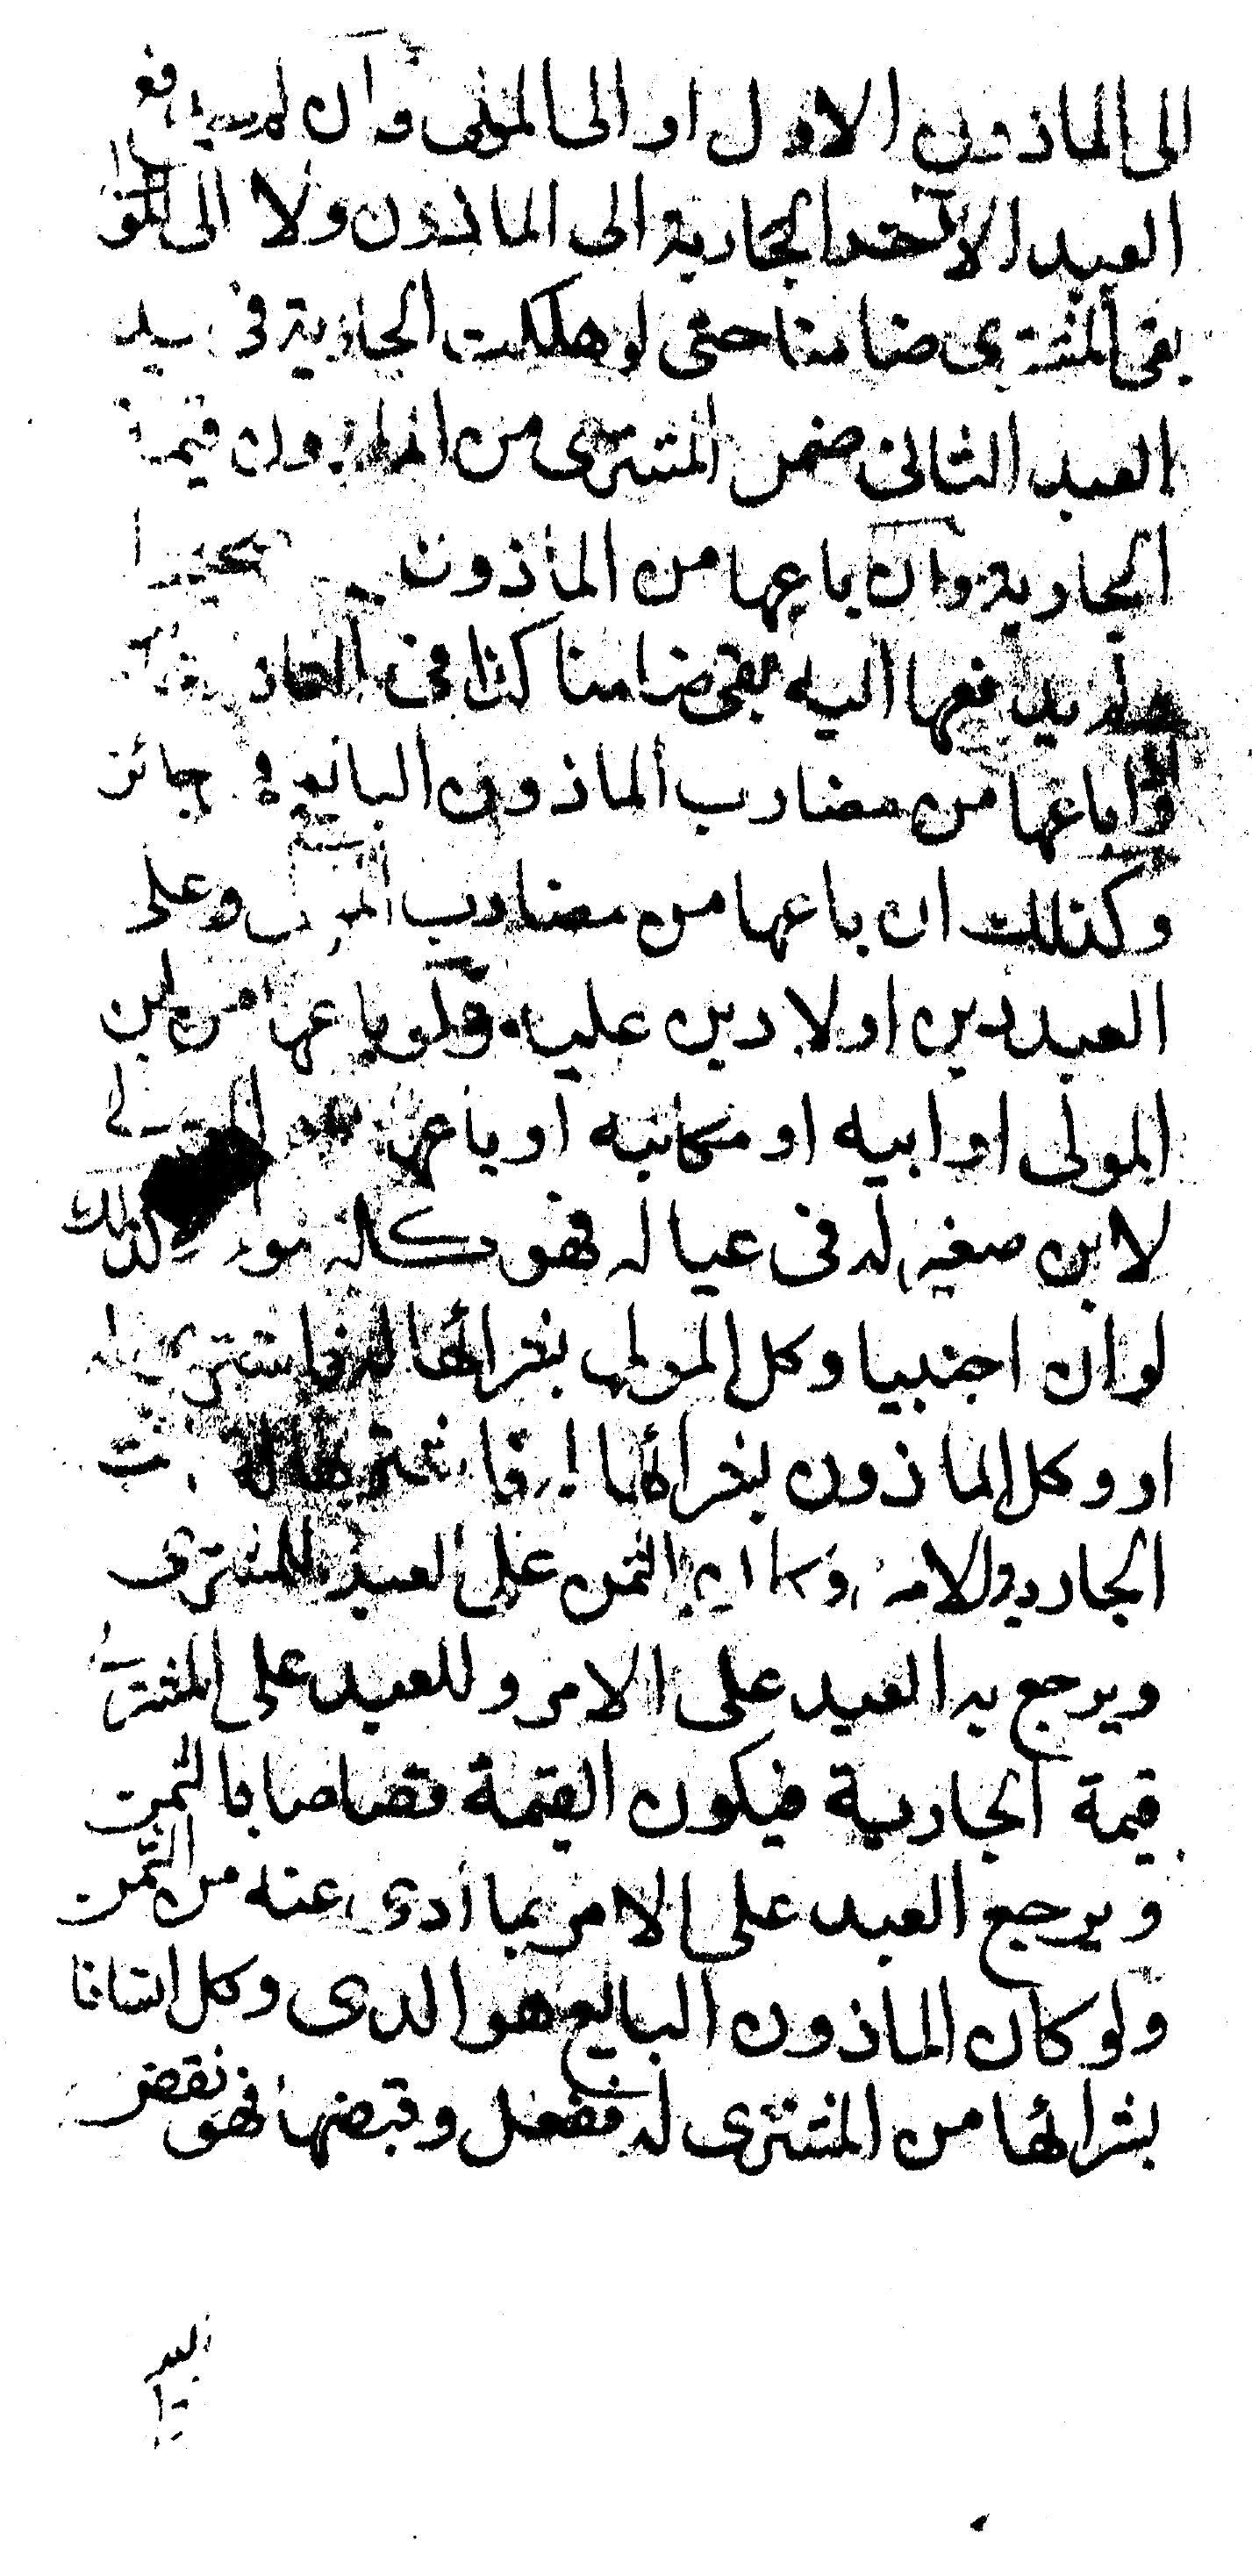 الى الماذون الاول او الى المولى وان لم يدفع
العبد الاخر الجارية الى الماذون ولا الى المولى
بقى المشترى ضامنا حتى لو هلكت الجارية فى يد
العبد الثانى ضمن المشترى من الماذون قيمة
الجارية وان باعها من الماذون
ولم يدفعها اليه بقى ضامنا كذا فى
واباعها من مضارب الماذون البائع جائز
وكذلك ان باعها من مضارب المولى وعلى
العبد دين او لا دين عليه ولو باعها من ابن
المولى او ابيه او مكاتبه او باعها المولى
لابن صغير له فى عياله فهو كله سواء كذلك
لو ان اجنبيا وكل المولى بشرائها له فاشترى له
او وكل الماذون بشرائها له فاشتريها له
الجارية للامر وكان الثمن على العبد للمشترى
ويرجع به العبد على الامر وللعبد على المشترى
قيمة الجارية فيكون القيمة قصاصا بالثمن
ويرجع العبد على الامر بما أدى عنه من الثمن
ولو كان الماذون البايع هو الذى وكل انسانا
بشرائها من المشترى له ففعل وقبضها فهو نقض